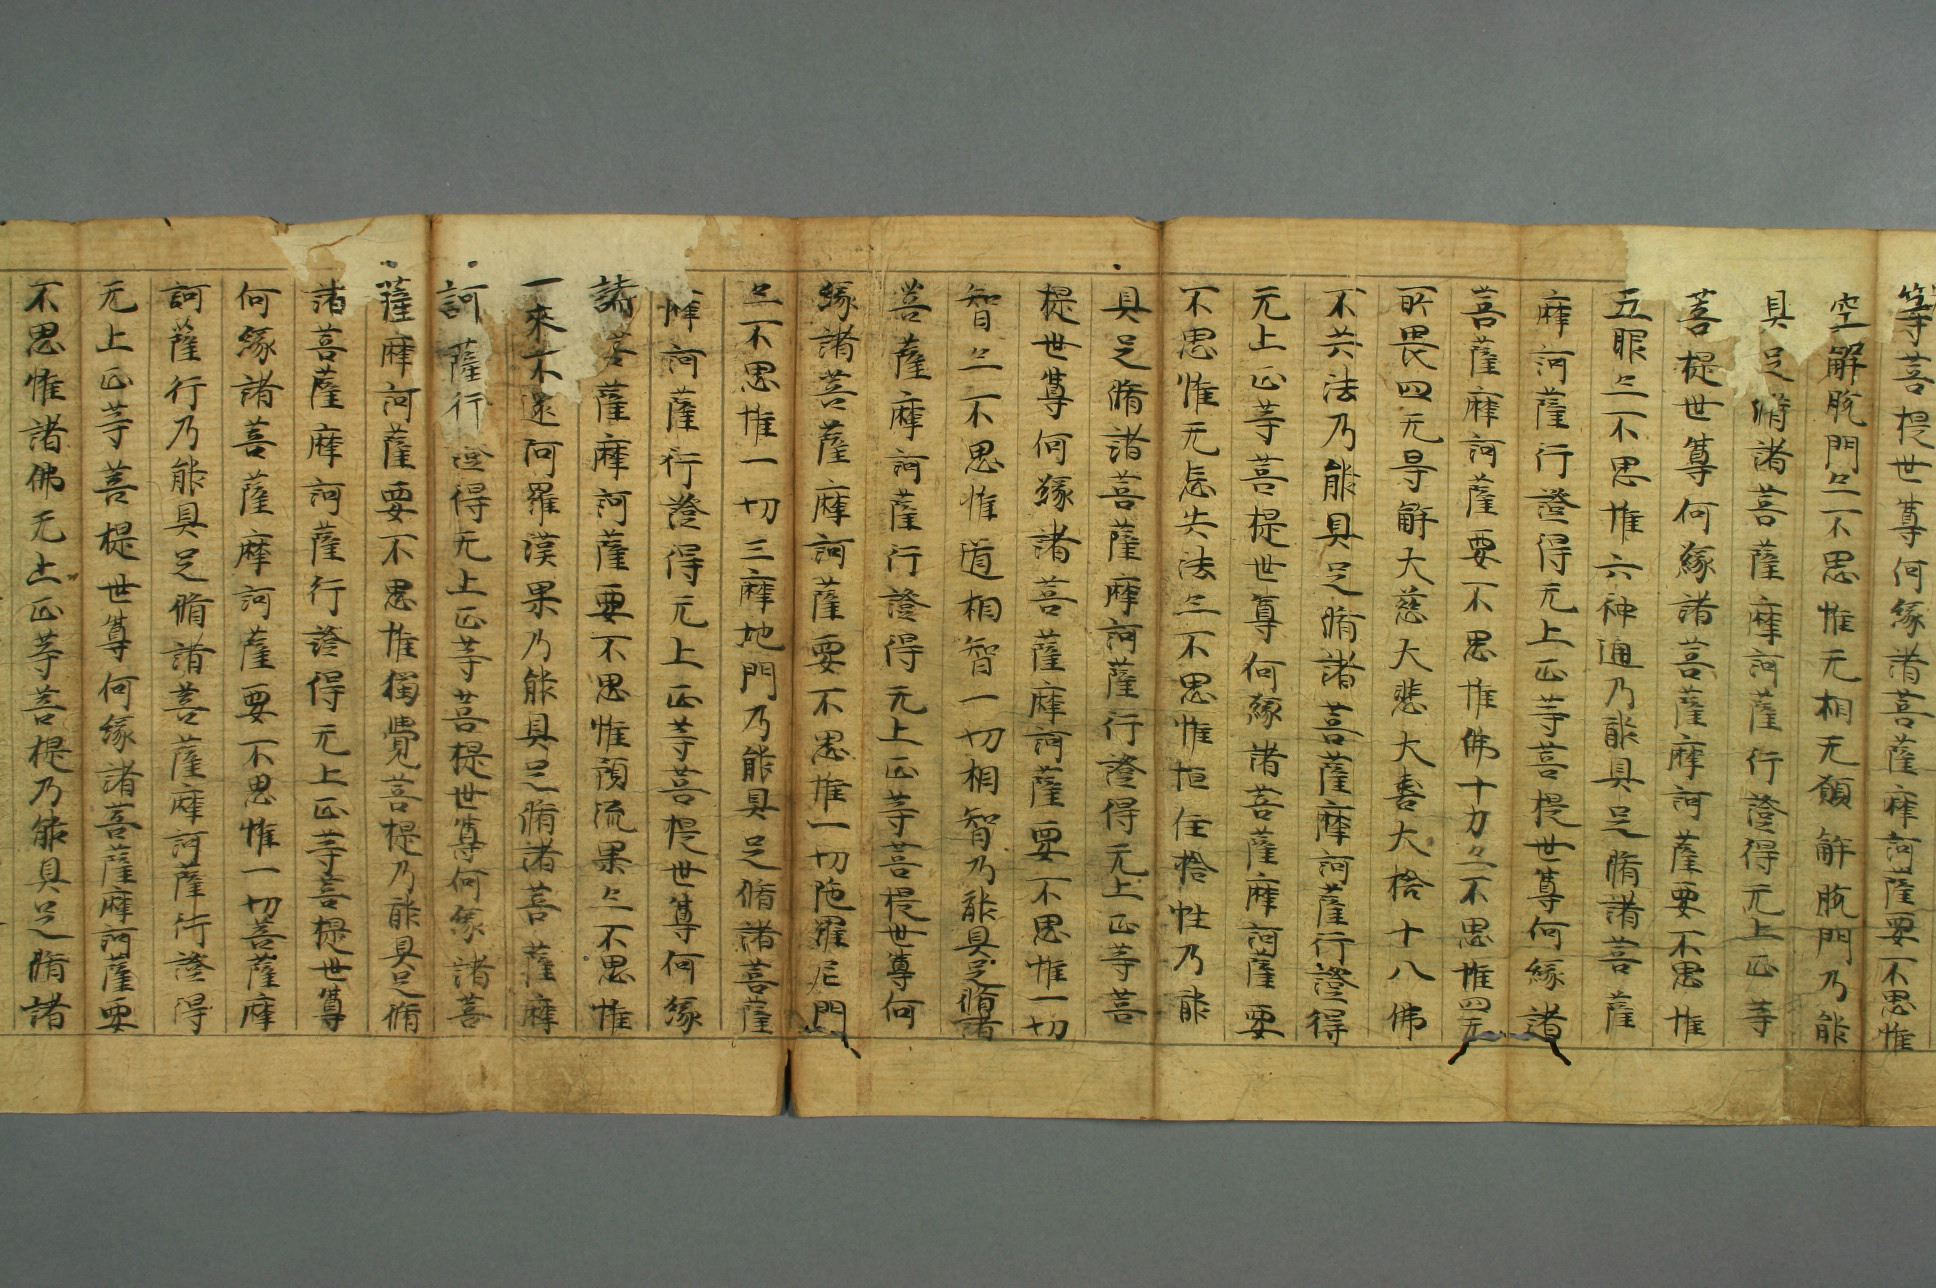 等菩提世尊何緣諸菩薩摩訶薩要不思惟
空解脫門亦不思惟无相无願解脫門乃能
具足脩諸菩薩摩訶薩行證得无上正等
菩提世尊何緣諸菩薩摩訶薩要不思惟
五眼亦不思惟六神通乃能具足脩諸菩薩
摩訶薩行證得无上正等菩提世尊何緣諸
菩薩摩訶薩要不思惟佛十力亦不思惟四无
所畏四无导解大慈大悲大喜大捨十八佛
不共法乃能具足脩諸菩薩摩訶薩行證得
无上正等菩提世尊何緣諸菩薩摩訶薩要
不思惟无忘失法亦不思惟恒住捨性乃能
具足脩諸菩薩摩訶薩行證得无上正等菩
提世尊何緣諸菩薩摩訶薩要不思惟一切
智亦不思惟道相智一切相智乃能具足脩諸
菩薩摩訶薩行證得无上正等菩提世尊何
緣諸菩薩摩訶薩要不思惟一切陁羅尼門
亦不思惟一切三摩地門乃能具足脩諸菩薩
摩訶薩行證得无上正等菩提世尊何緣
諸菩薩摩訶薩要不思惟預流果亦不思惟
一來不還阿羅漢果乃能具足脩諸菩薩摩
訶薩行證得无上正等菩提世尊何緣諸菩
薩摩訶薩要不思惟獨覺菩提乃能具足脩
諸菩薩摩訶薩行證得无上正等菩提世尊
何緣諸菩薩摩訶薩要不思惟一切菩薩摩
訶薩行乃能具足脩諸菩薩摩訶薩行證得
无上正等菩提世尊何緣諸菩薩摩訶薩要
不思惟諸佛无上正等菩提乃能具足脩諸